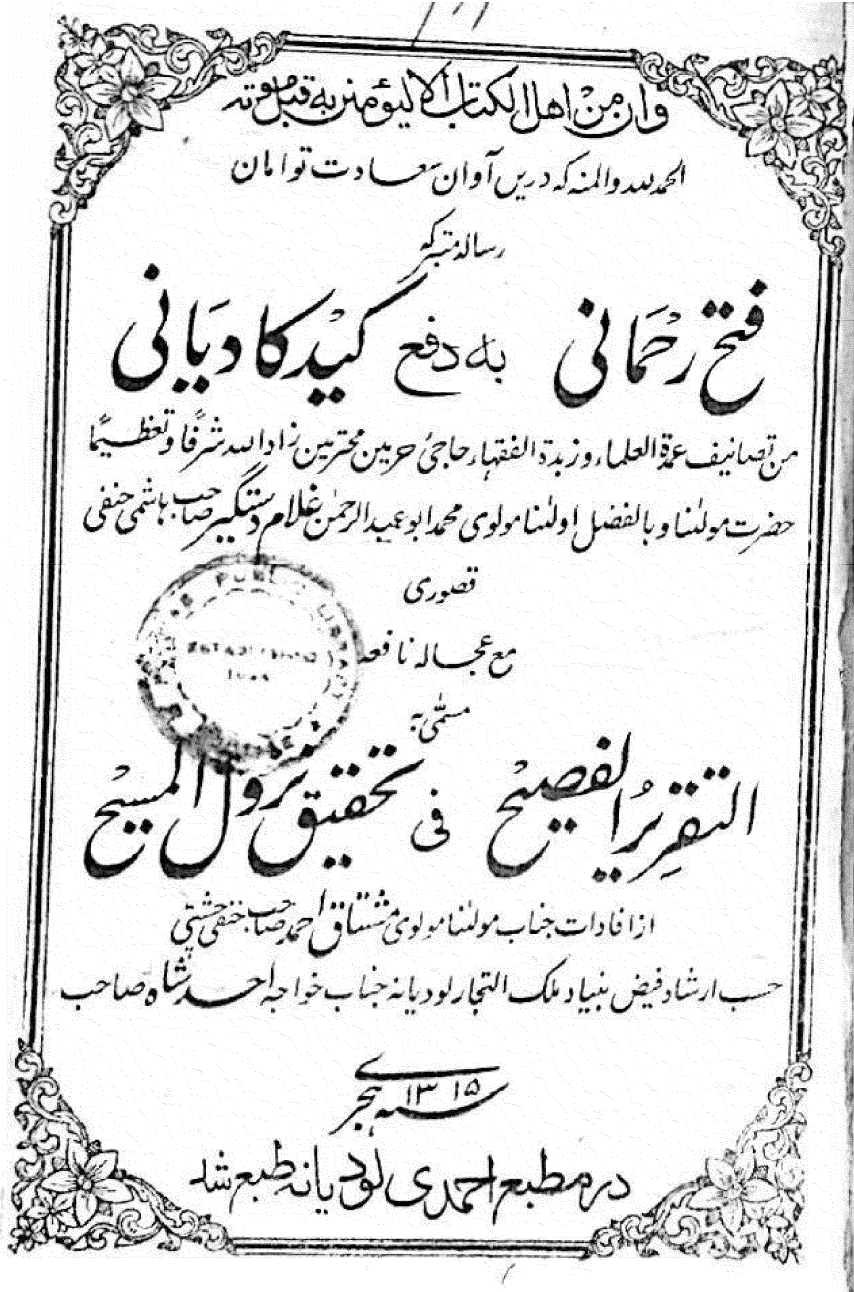 وان من اهل الكتاب الا ليؤمنن به قبل موته
الحمد لله والمنه که دریں آوان سعادت توامان
رساله متبرکه
فتح رحمانی به دفع کید کادیانی
من تصانیف عمدة العلماء و زبدة الفقهاء حاجئ حرمین محترمین زاد الله شرفًا و تعظیمًا
حضرت مولٰنا و بالفضل اولٰنا مولوی محمد ابو عبد الرحمٰن غلام دستگیر صاحب ہاشمی حنفی
قصوری
مع عجاله نافعه
مسمّٰی به
التقریرُ الفصیح فی تحقیق نزول المسیح
از افادات جناب مولٰنا مولوی مشتاق احمد صاحب حنفی چشتی
حسب ارشاد فیض بنیاد ملک التجار لودیانه جناب خواجه احمد شاه صاحب
سنه ۱۳۱۵ ہجری
در مطبع احمدی لودیانه طبع شد
PUBLIC LIBRARY